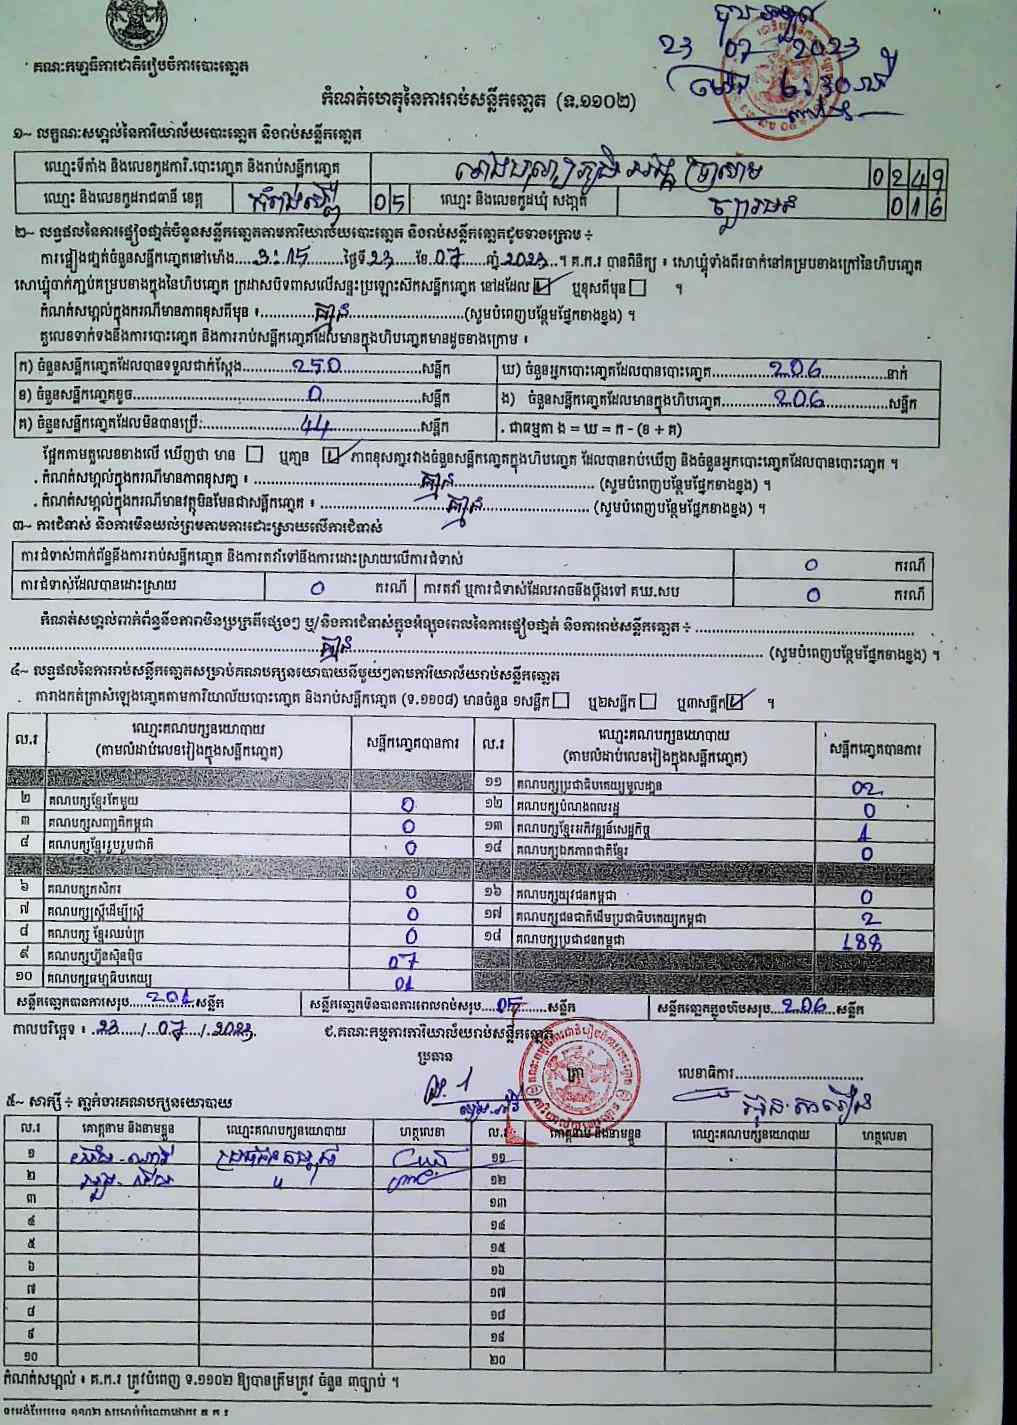 គណៈកម្មាធិការជាតិរៀបចំការបោះឆ្នោត
23 07 2023
កំណត់ហេតុនៃការរាប់សន្លឹកឆ្នោត (ទ.១១០២)
១~ លក្ខណៈសម្គាល់នៃការិយាល័យបោះឆ្នោត និងរាប់សន្លឹកឆ្នោត
ឈ្មោះទីតាំង និងលេខកូដការិ.បោះឆ្នោត និងរាប់សន្លឹកឆ្នោត 0249
ឈ្មោះ និងលេខកូដរាជធានី ខេត្ត កំពង់ស្ពឺ 05 ឈ្មោះ និងលេខកូដឃុំ សង្កាត់ 016
២~ លទ្ធផលនៃការផ្ទៀងផ្ទាត់ចំនួនសន្លឹកឆ្នោតតាមការិយាល័យបោះឆ្នោត និងរាប់សន្លឹកឆ្នោតដូចខាងក្រោម ÷
ការផ្ទៀងផ្ទាត់ចំនួនសន្លឹកឆ្នោតនៅម៉ោង 3:15 ថ្ងៃទី 23 ខែ 07 ឆ្នាំ 2023 ។ គ.ក.រ បានពិនិត្យ ៖ សោឃ្លុំទាំងពីរចាក់នៅគម្របខាងក្រៅនៃហិបឆ្នោត
សោឃ្លុំចាក់ភ្ជាប់គម្របខាងក្នុងនៃហិបឆ្នោត ក្រដាសបិទពាសលើសន្ទះប្រឡោះស៊កសន្លឹកឆ្នោត នៅដដែល ☑ ឬខុសពីមុន ☐ ។
កំណត់សម្គាល់ក្នុងករណីមានភាពខុសពីមុន ៖ គ្មាន (សូមបំពេញបន្ថែមផ្នែកខាងខ្នង) ។
តួលេខទាក់ទងនឹងការបោះឆ្នោត និងការរាប់សន្លឹកឆ្នោតដែលមានក្នុងហិបឆ្នោតមានដូចខាងក្រោម ៖
ក) ចំនួនសន្លឹកឆ្នោតដែលបានទទួលជាក់ស្តែង 250 សន្លឹក ឃ) ចំនួនអ្នកបោះឆ្នោតដែលបានបោះឆ្នោត 206 នាក់
ខ) ចំនួនសន្លឹកឆ្នោតខូច 0 សន្លឹក ង) ចំនួនសន្លឹកឆ្នោតដែលមានក្នុងហិបឆ្នោត 206 សន្លឹក
គ) ចំនួនសន្លឹកឆ្នោតដែលមិនបានប្រើ: 44 សន្លឹក . ជាធម្មតា ង = ឃ = ក - (ខ + គ)
ផ្អែកតាមតួលេខខាងលើ ឃើញថា មាន ☐ ឬគ្មាន ☑ ភាពខុសគ្នារវាងចំនួនសន្លឹកឆ្នោតក្នុងហិបឆ្នោត ដែលបានរាប់ឃើញ និងចំនួនអ្នកបោះឆ្នោតដែលបានបោះឆ្នោត ។
. កំណត់សម្គាល់ក្នុងករណីមានភាពខុសគ្នា ៖ គ្មាន (សូមបំពេញបន្ថែមផ្នែកខាងខ្នង) ។
. កំណត់សម្គាល់ក្នុងករណីមានវត្ថុមិនមែនជាសន្លឹកឆ្នោត ៖ គ្មាន (សូមបំពេញបន្ថែមផ្នែកខាងខ្នង) ។
៣~ ការជំទាស់ និងការមិនយល់ព្រមតាមការដោះស្រាយលើការជំទាស់
ការជំទាស់ពាក់ព័ន្ធនឹងការរាប់សន្លឹកឆ្នោត និងការតវ៉ាទៅនឹងការដោះស្រាយលើការជំទាស់ 0 ករណី
ការជំទាស់ដែលបានដោះស្រាយ 0 ករណី ការតវ៉ា ឬការជំទាស់ដែលអាចនឹងប្តឹងទៅ គឃ.សប 0 ករណី
កំណត់សម្គាល់ពាក់ព័ន្ធនឹងភាពមិនប្រក្រតីផ្សេងៗ ឬ/និងការជំទាស់ក្នុងអំឡុងពេលនៃការផ្ទៀងផ្ទាត់ និងការរាប់សន្លឹកឆ្នោត ÷
គ្មាន (សូមបំពេញបន្ថែមផ្នែកខាងខ្នង) ។
៤~ លទ្ធផលនៃការរាប់សន្លឹកឆ្នោតសម្រាប់គណបក្សនយោបាយនីមួយៗតាមការិយាល័យរាប់សន្លឹកឆ្នោត
តារាងកត់ត្រាសំឡេងឆ្នោតតាមការិយាល័យបោះឆ្នោត និងរាប់សន្លឹកឆ្នោត (ទ.១១០៨) មានចំនួន ១សន្លឹក ☐ ឬ២សន្លឹក ☐ ឬ៣សន្លឹក ☑ ។
ល.រ ឈ្មោះគណបក្សនយោបាយ (តាមលំដាប់លេខរៀងក្នុងសន្លឹកឆ្នោត) សន្លឹកឆ្នោតបានការ ល.រ ឈ្មោះគណបក្សនយោបាយ (តាមលំដាប់លេខរៀងក្នុងសន្លឹកឆ្នោត) សន្លឹកឆ្នោតបានការ
១១ គណបក្សប្រជាធិបតេយ្យមូលដ្ឋាន 02
២ គណបក្សខ្មែរតែមួយ 0 ១២ គណបក្សបំណងពលរដ្ឋ 0
៣ គណបក្សសញ្ជាតិកម្ពុជា 0 ១៣ គណបក្សខ្មែរអភិវឌ្ឍន៍សេដ្ឋកិច្ច 1
៤ គណបក្សខ្មែររួបរួមជាតិ 0 ១៤ គណបក្សឯកភាពជាតិខ្មែរ 0
៦ គណបក្សកសិករ 0 ១៦ គណបក្សយុវជនកម្ពុជា 0
៧ គណបក្សស្ត្រីដើម្បីស្ត្រី 0 ១៧ គណបក្សជនជាតិដើមប្រជាធិបតេយ្យកម្ពុជា 2
៨ គណបក្ស ខ្មែរឈប់ក្រ 0 ១៨ គណបក្សប្រជាជនកម្ពុជា 188
៩ គណបក្សហ្វ៊ុនស៊ិនប៉ិច 07
១០ គណបក្សធម្មាធិបតេយ្យ 01
សន្លឹកឆ្នោតបានការសរុប 201 សន្លឹក សន្លឹកឆ្នោតមិនបានការពេលរាប់សរុប 05 សន្លឹក សន្លឹកឆ្នោតក្នុងហិបសរុប 206 សន្លឹក
កាលបរិច្ឆេទ ៖ 23/07/2023 ជ.គណៈកម្មការការិយាល័យរាប់សន្លឹកឆ្នោត
ប្រធាន ត្រា លេខាធិការ
៥~ សាក្សី ÷ ភ្នាក់ងារគណបក្សនយោបាយ
ល.រ គោត្តនាម និងនាមខ្លួន ឈ្មោះគណបក្សនយោបាយ ហត្ថលេខា ល.រ គោត្តនាម និងនាមខ្លួន ឈ្មោះគណបក្សនយោបាយ ហត្ថលេខា
១ ១១
២ " ១២
៣ ១៣
៤ ១៤
៥ ១៥
៦ ១៦
៧ ១៧
៨ ១៨
៩ ១៩
១០ ២០
កំណត់សម្គាល់ ៖ គ.ក.រ ត្រូវបំពេញ ទ.១១០២ ឱ្យបានត្រឹមត្រូវ ចំនួន ៣ច្បាប់ ។